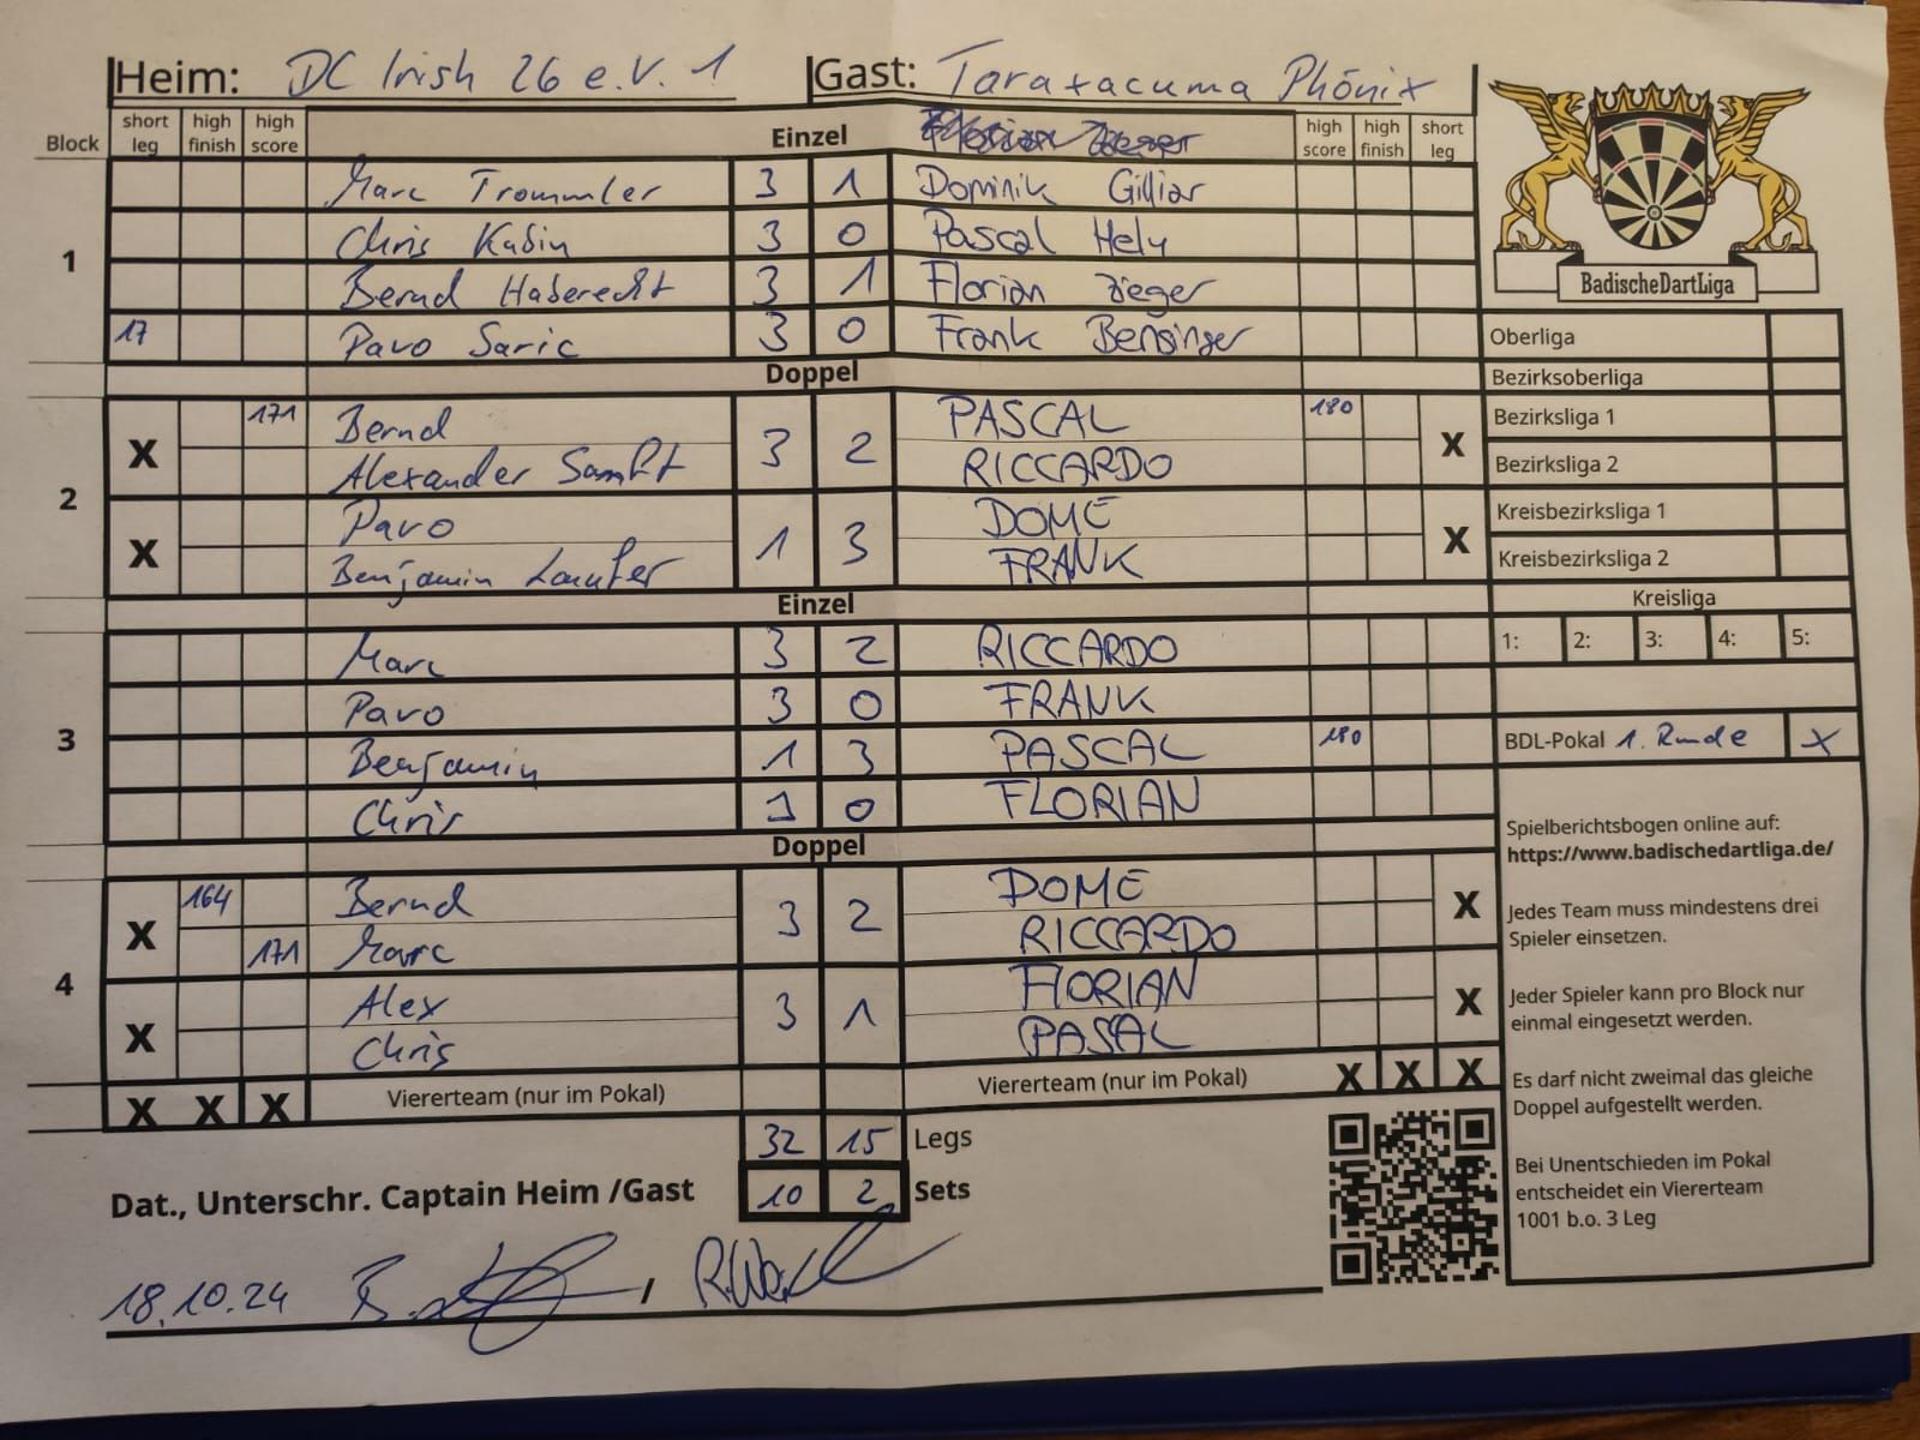 Heim: DC Irish 26 e.V. 1 Gast: Taraxacuma Phönix
Block short leg high finish high score Einzel high score high finish short leg
Marc Trommler 3 1 Dominik Gilliar
1 Chris Kubin 3 0 Pascal Hely
Bernd Haberecht 3 1 Florian Zieger
17 Pavo Saric 3 0 Frank Bensinger
Doppel
X 171 Bernd 3 2 PASCAL 180 X
Alexander Sanft RICCARDO
2
X Pavo 1 3 DOME X
Benjamin Laufer FRANK
Einzel
Marc 3 2 RICCARDO
Pavo 3 0 FRANK
3 Benjamin 1 3 PASCAL 180
Chris 3 0 FLORIAN
Doppel
X 164 Bernd 3 2 DOME X
171 Marc RICCARDO
4
X Alex 3 1 FLORIAN X
Chris PASAL
X X X Viererteam (nur im Pokal) Viererteam (nur im Pokal) X X X
32 15 Legs
10 2 Sets
Dat., Unterschr. Captain Heim /Gast
18.10.24 /
BadischeDartLiga
Oberliga
Bezirksoberliga
Bezirksliga 1
Bezirksliga 2
Kreisbezirksliga 1
Kreisbezirksliga 2
Kreisliga
1: 2: 3: 4: 5:
BDL-Pokal 1. Runde X
Spielberichtsbogen online auf:
https://www.badischedartliga.de/
Jedes Team muss mindestens drei
Spieler einsetzen.
Jeder Spieler kann pro Block nur
einmal eingesetzt werden.
Es darf nicht zweimal das gleiche
Doppel aufgestellt werden.
Bei Unentschieden im Pokal
entscheidet ein Viererteam
1001 b.o. 3 Leg